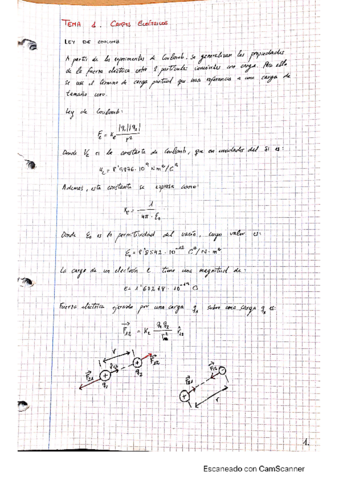 TEMA 1. CAMPOS ELÉCTRICOS
LEY DE COULOMB
A partir de los experimentos de Coulomb, se generalizan las propiedades
de la fuerza eléctrica entre 2 partículas con carga. Para ello
se usa el término de carga puntual que hace referencia a una carga de
tamaño cero.
Ley de Coulomb:
Fe = Ke |q1||q2| / r²
Donde Ke es la constante de Coulomb, que en unidades del SI es:
Ke = 8'9876·10⁹ N·m²/C²
Además, esta constante se expresa como:
Ke = 1 / 4π·E0
Donde E0 es la permitividad del vacío, cuyo valor es:
E0 = 8'8542·10⁻¹² C²/N·m²
La carga de un electrón e tiene una magnitud de:
e = 1'60218·10⁻¹⁹ C
Fuerza eléctrica ejercida por una carga q1 sobre una carga q2 es:
F12 = Ke q1 q2 / r² r̂12
r
F21
r̂12
F12
q1
q2
r
1.
Escaneado con CamScanner